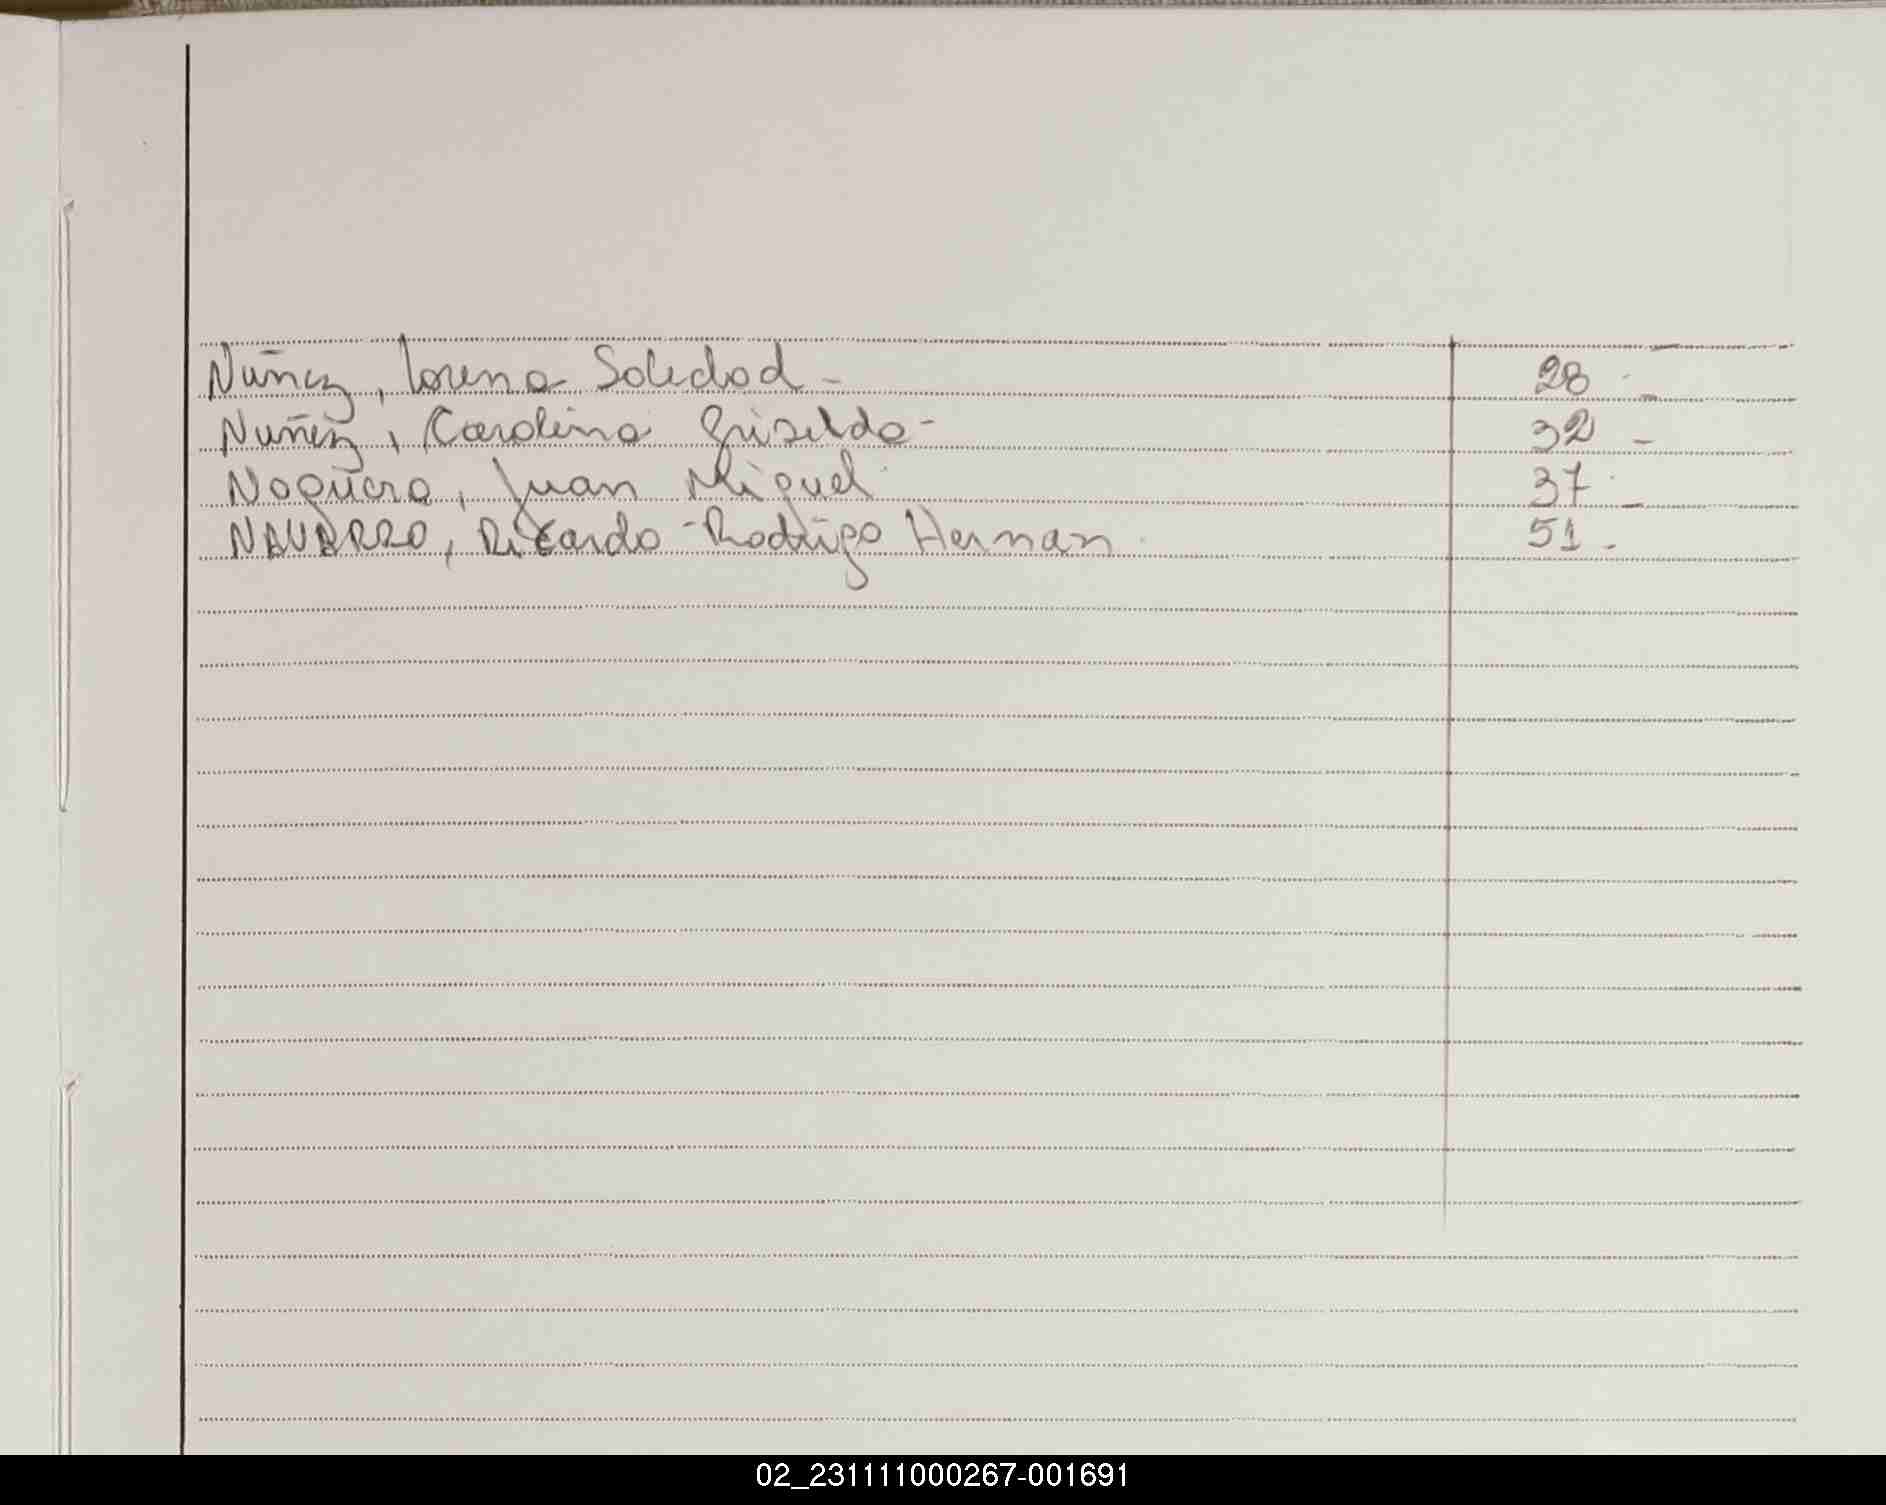 Nuñez, Lorena Soledad - 28 -
Nuñez, Carolina Griselda - 32 -
Noguera, Juan Miguel 37 -
NAVARRO, Ricardo - Rodrigo Hernan. 51 -
02_231111000267-001691